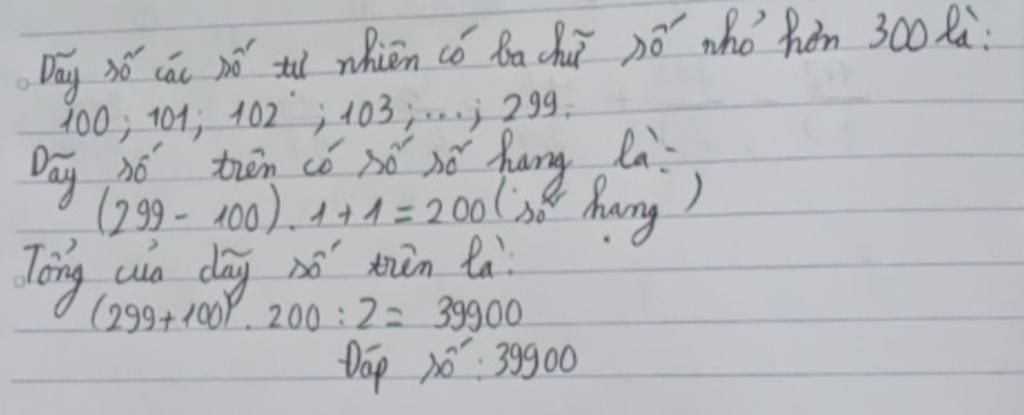 Dãy số các số tự nhiên có ba chữ số nhỏ hơn 300 là:
100; 101; 102 ; 103; ...; 299.
Dãy số trên có số số hang là:
(299 - 100) . 1 + 1 = 200 (số hạng)
Tổng của dãy số trên là:
(299+100) . 200 : 2 = 39900
Đáp số: 39900